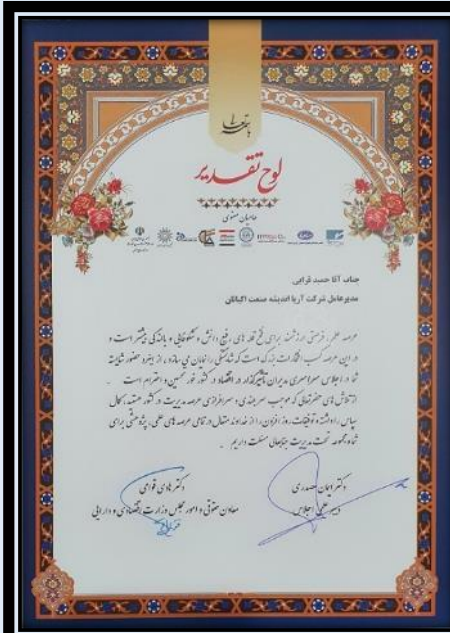 باسمه تعالی
لوح تقدیر
حامیان معنوی
جناب آقا حمید قرایی
مدیرعامل شرکت آریا اندیشه صنعت اکباتان
عرصه علم، فرصتی ارزشمند برای فتح قله های رفیع دانش و شکوفایی و بالندگی بیشتر است و
در این عرصه کسب افتخارات بزرگ است که شایستگی را نمایان می سازد، از اینرو حضور شایسته
شما در اجلاس سراسری مدیران تاثیرگذار در اقتصاد کشور در خور تحسین و احترام است
از تلاش های حضرتعالی که موجب سربلندی و سرافرازی عرصه مدیریت در کشور هستید، کمال
سپاس را داشته و توفیقات روز افزون را از خداوند متعال در تمامی عرصه های علمی، پژوهشی برای
شما و مجموعه تحت مدیریت جنابعالی مسئلت داریم
دکتر ایمان صدری
دبیر علمی اجلاس
دکتر هادی قوامی
معاون حقوقی و امور مجلس وزارت اقتصادی و دارایی